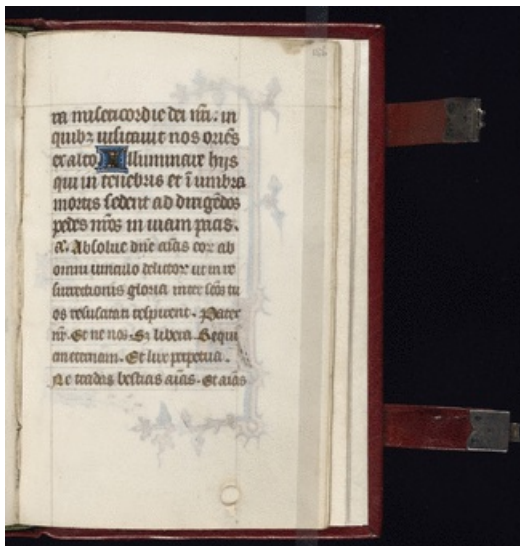 ra misericordie dei nr̄i. in
quibȝ uisitauit nos oriēs
ex alto Illuminare hijs
qui in tenebris et ī umbra
mortis sedent ad dirigēdos
pedes nr̄os in uiam pacis.
a. Absolue dn̄e aīas eoꝝ ab
omni uinculo delictoꝝ ut in re
surrectionis gloria inter scōs tu
os resuscitati respirent. Pater
nr̄. Et ne nos. Sꝫ libera. Requi
em eternam. Et lux perpetua.
Ne tradas bestiis aīas. Et aīas